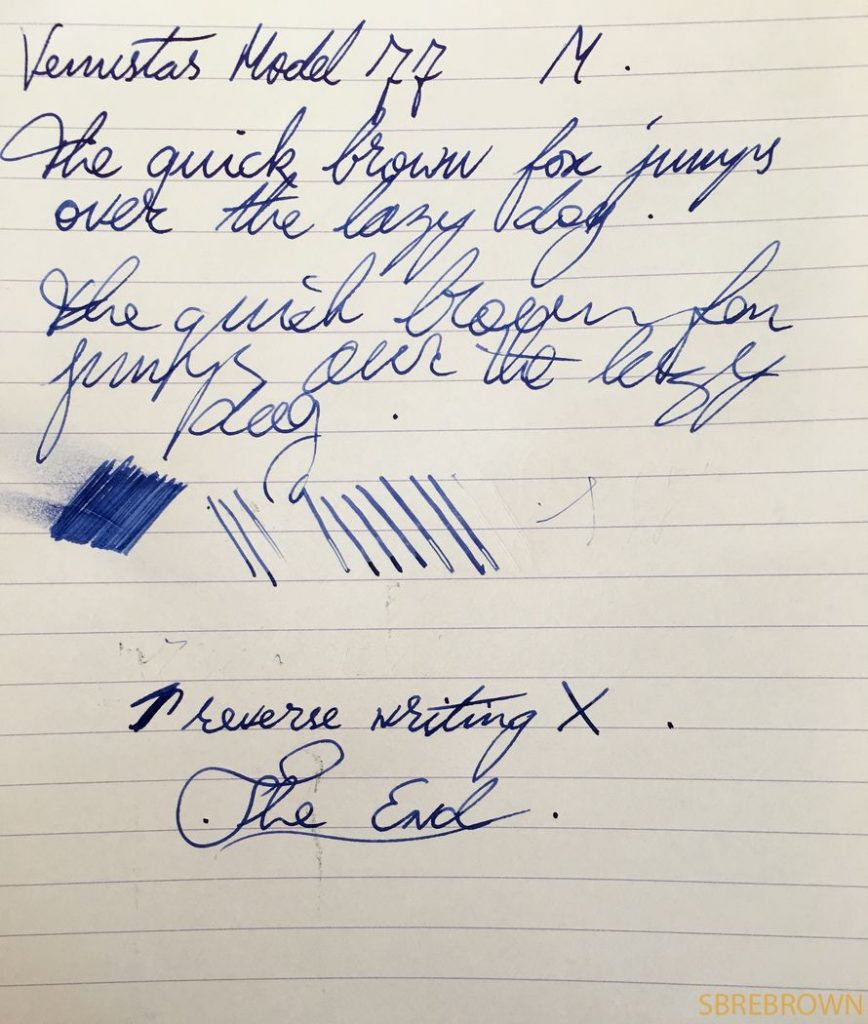 Venustas Model 77 M.
The quick brown fox jumps
over the lazy dog.
The quick brown fox
jumps over the lazy
dog.
↑ reverse writing X.
The End.
SBREBROWN